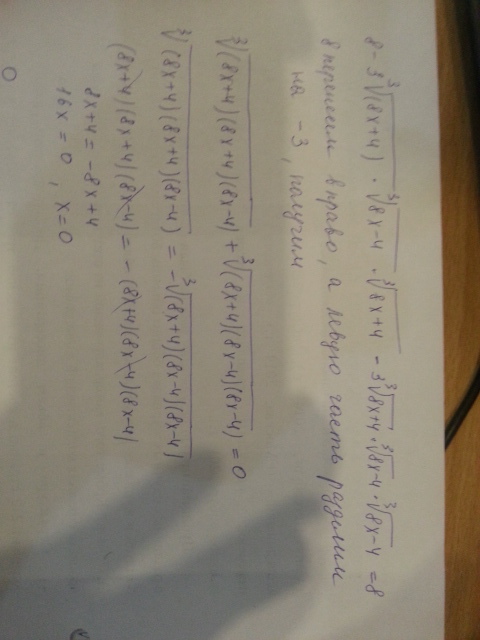 8 - 3∛(8x+4) · ∛8x-4 · ∛8x+4 - 3∛8x+4 · ∛8x-4 · ∛8x-4 = 8
8 перенесем вправо, а левую часть разделим
на -3, получим
∛(8x+4)(8x+4)(8x-4) + ∛(8x+4)(8x-4)(8x-4) = 0
∛(8x+4)(8x+4)(8x-4) = -∛(8x+4)(8x-4)(8x-4)
(8x+4)(8x+4)(8x-4) = -(8x+4)(8x-4)(8x-4)
8x+4 = -8x+4
16x = 0, x=0